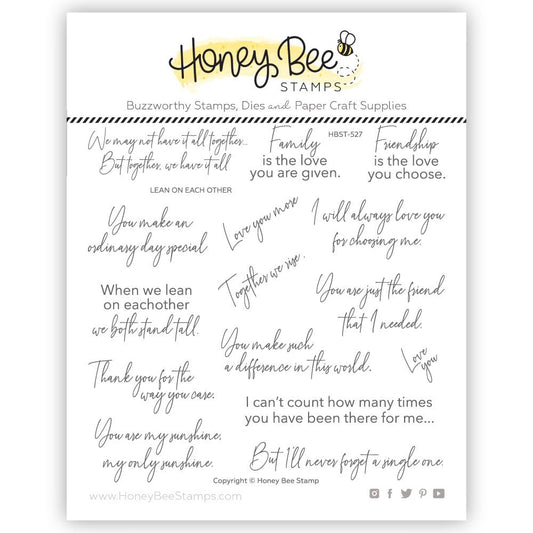 Honey Bee
STAMPS
Buzzworthy Stamps, Dies and Paper Craft Supplies
We may not have it all together...
But together, we have it all
LEAN ON EACH OTHER
Family
is the love
you are given.
HBST-527
Friendship
is the love
you choose.
You make an
ordinary day special
Love you more
I will always love you
for choosing me.
When we lean
on eachother
we both stand tall.
Together we rise.
You are just the friend
that I needed.
You make such
a difference in this world.
Love
you
Thank you for the
way you care.
I can't count how many times
you have been there for me...
You are my sunshine,
my only sunshine.
But I'll never forget a single one.
Copyright © Honey Bee Stamp
www.HoneyBeeStamps.com